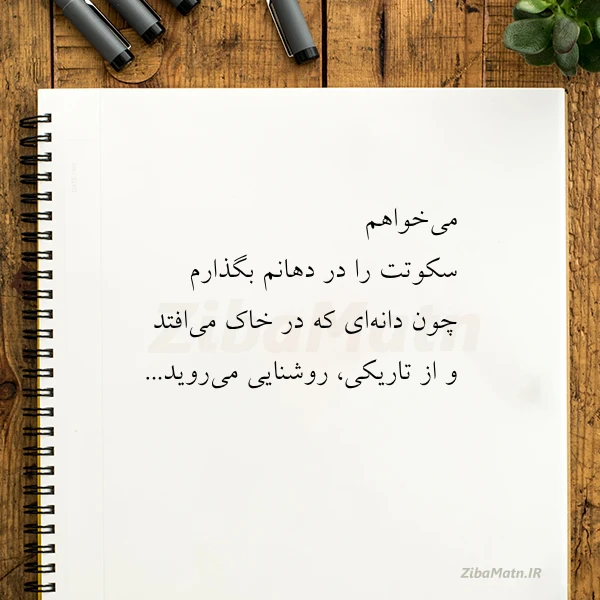 می‌خواهم
سکوتت را در دهانم بگذارم
چون دانه‌ای که در خاک می‌افتد
و از تاریکی، روشنایی می‌روید...
ZibaMatn
ZibaMatn.IR